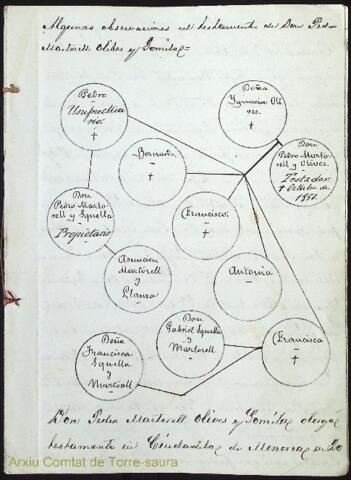 Algunas observaciones al testamento de Don Pedro
Martorell Olives y Gomila=
Pedro
Usufructua
rio.
†
Doña
Ygnacia Oli
ves.
†
Bernardo
†
Don
Pedro Marto
rell y Olives.
Testador.
† Octubre de
Don
Pedro Marto
rell y Squella
Propietario
Francisco.
†
Asuncion
Martorell
y
Llanza
Antonia
†
Don
Gabriel Squella
y
Martorell
Francisca
†
Doña
Francisca
Squella
y
Martorell
Don Pedro Martorell Olives y Gomila otorgó
testamento en Ciudadela de Menorca
Arxiu Comtat de Torre-saura